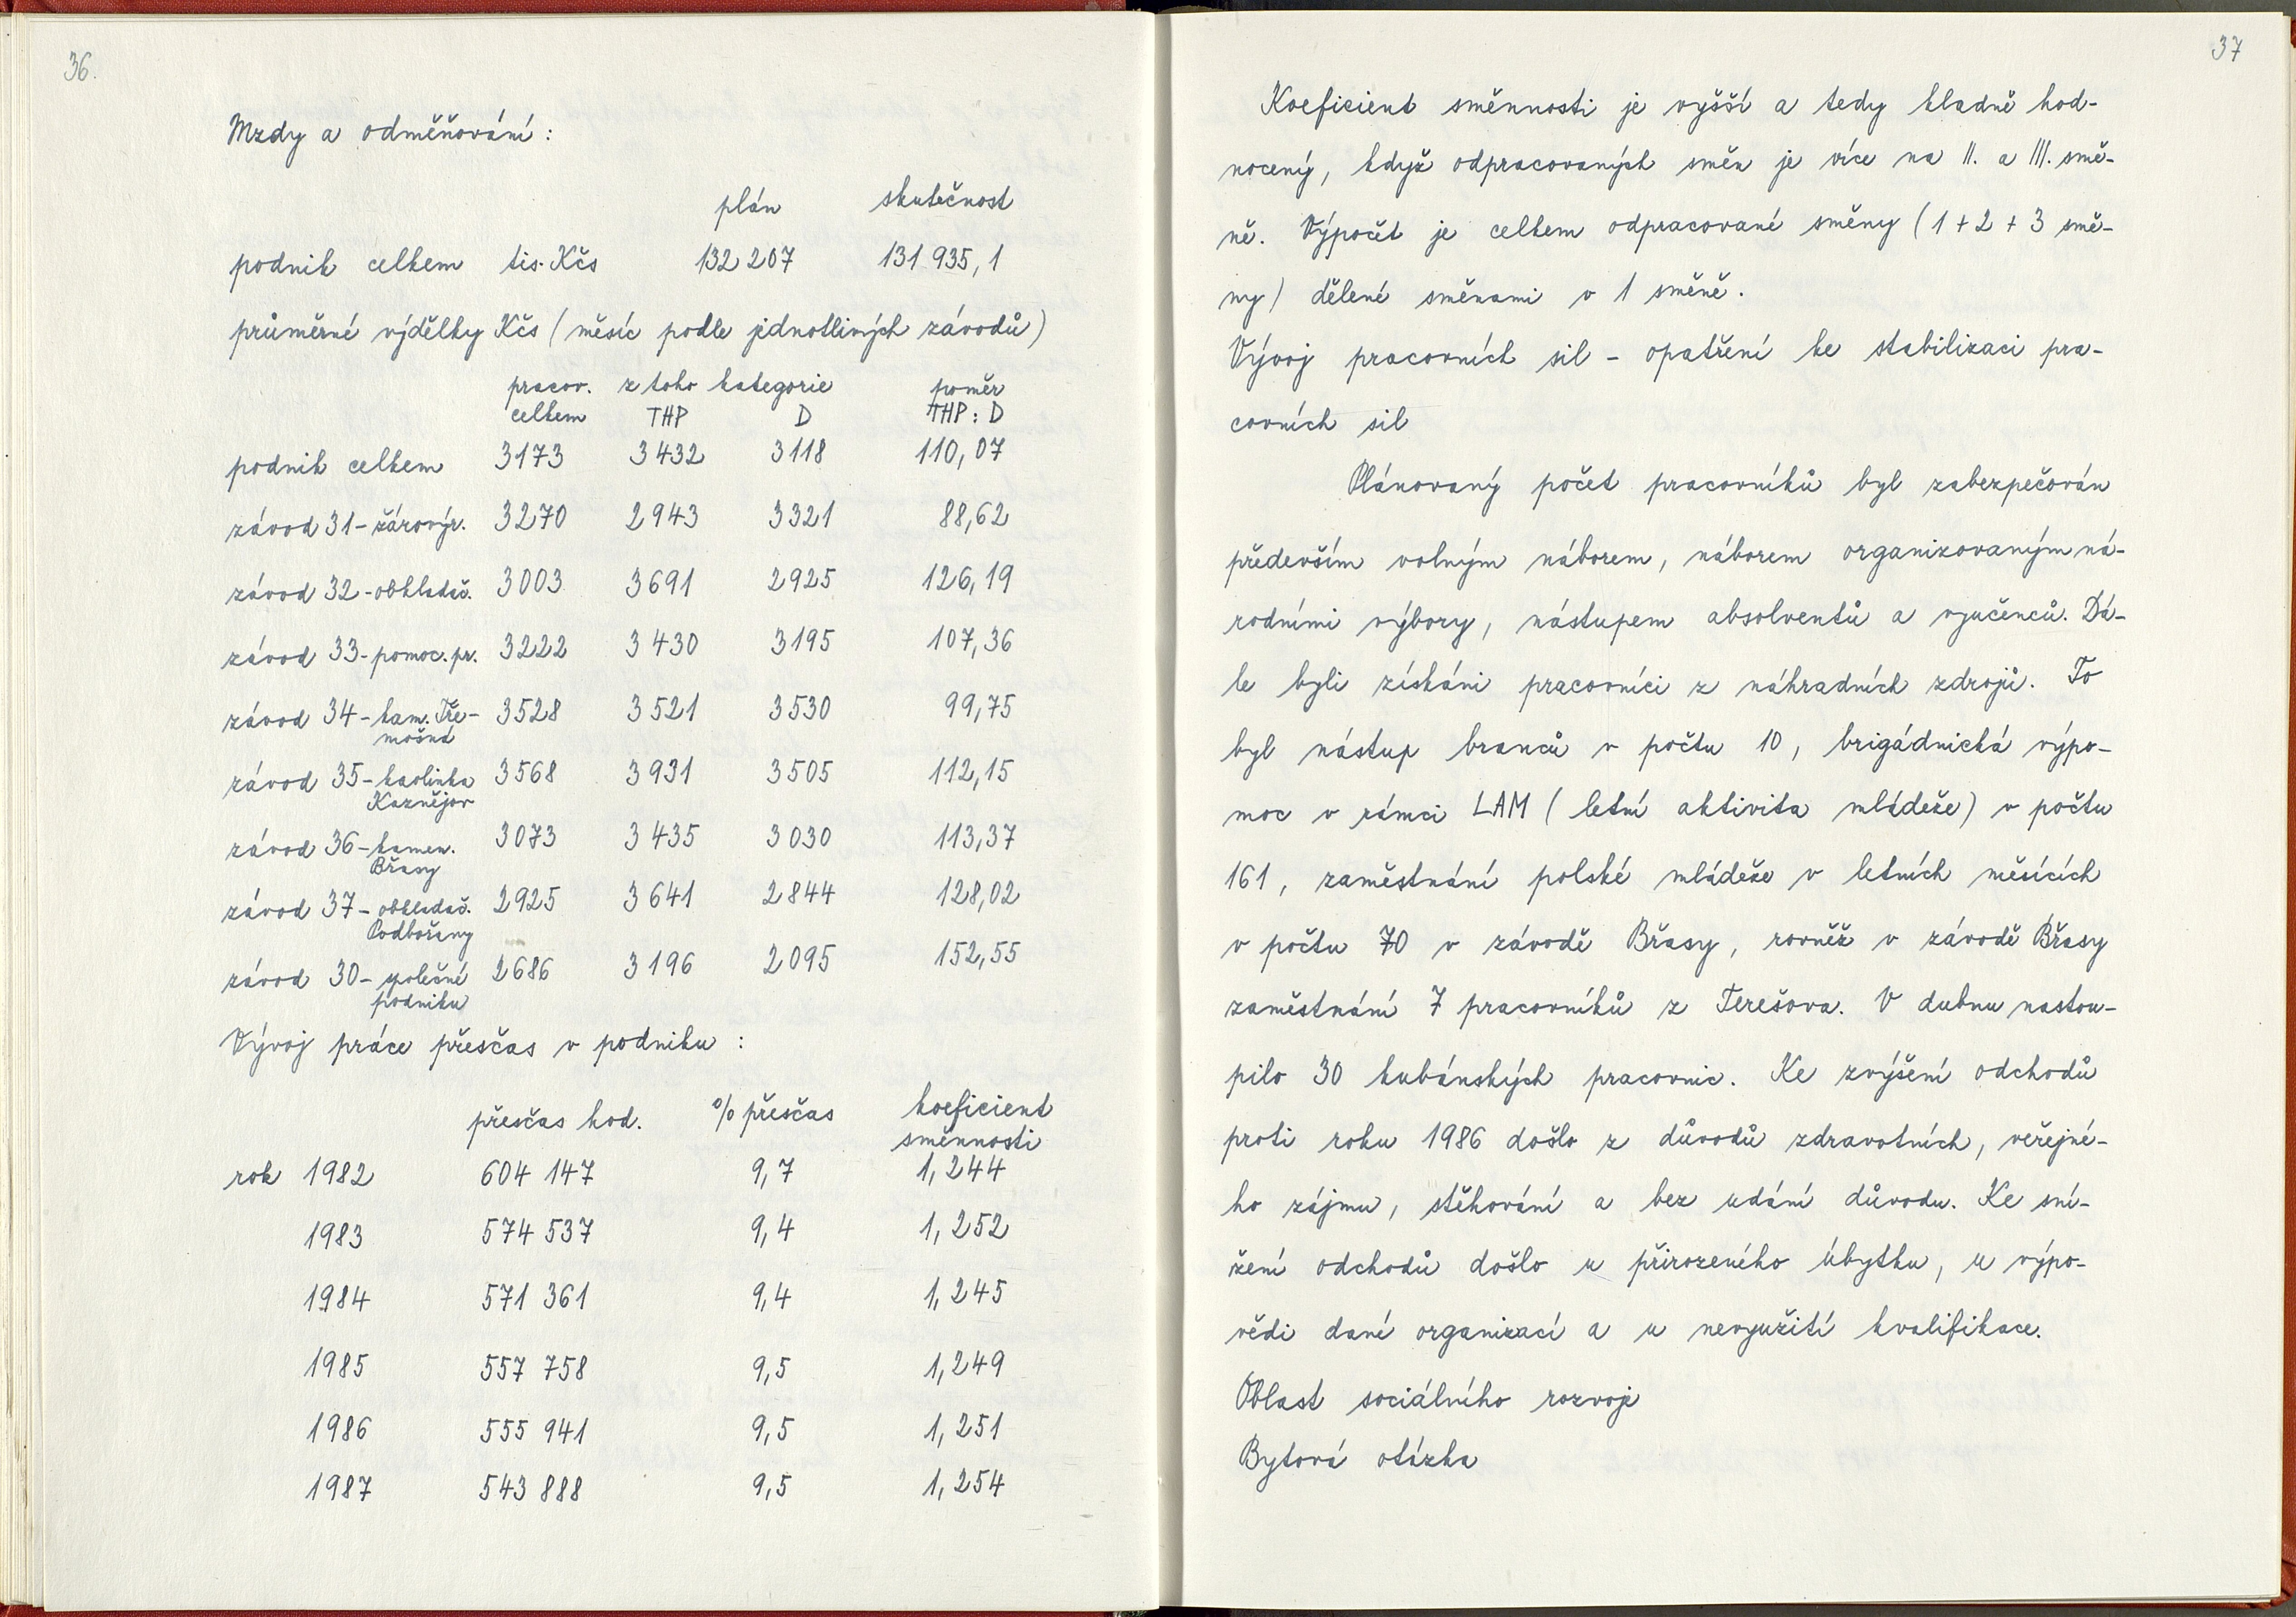 36.
Mzdy a odměňování :
plán skutečnost
podnik celkem tis. Kčs 132 207 131 935,1
průměrné výdělky Kčs (měsíc podle jednotlivých závodů)
pracov. z toho kategorie poměr
celkem THP D THP : D
podnik celkem 3173 3432 3118 110,07
závod 31 - žárovýr. 3270 2943 3321 88,62
závod 32 - obkladač. 3003 3691 2925 126,19
závod 33 - pomoc. pr. 3222 3430 3195 107,36
závod 34 - kam. Tře- 3528 3521 3530 99,75
mošná
závod 35 - kaolinka 3568 3931 3505 112,15
Kaznějov
závod 36 - kamen. 3073 3435 3030 113,37
Břasy
závod 37 - obkladač. 2925 3641 2844 128,02
Podbořany
závod 30 - společné 2686 3196 2095 152,55
podniku
Vývoj práce přesčas v podniku :
přesčas hod. % přesčas koeficient
směnnosti
rok 1982 604 147 9,7 1,244
1983 574 537 9,4 1,252
1984 571 361 9,4 1,245
1985 557 758 9,5 1,249
1986 555 941 9,5 1,251
1987 543 888 9,5 1,254
37
Koeficient směnnosti je vyšší a tedy kladně hod-
nocený, když odpracovaných směn je více na II. a III. smě-
ně. Výpočet je celkem odpracované směny (1 + 2 + 3 smě-
ny) dělené směnami v 1 směně.
Vývoj pracovních sil - opatření ke stabilizaci pra-
covních sil
Plánovaný počet pracovníků byl zabezpečován
především volným náborem, náborem organizovaným ná-
rodními výbory, nástupem absolventů a vyučenců. Dá-
le byli získáni pracovníci z náhradních zdrojů. To
byl nástup branců v počtu 10, brigádnická výpo-
moc v rámci LAM (letní aktivita mládeže) v počtu
161, zaměstnání polské mládeže v letních měsících
v počtu 70 v závodě Břasy, rovněž v závodě Břasy
zaměstnání 7 pracovníků z Terešova. V dubnu nastou-
pilo 30 kubánských pracovnic. Ke zvýšení odchodů
proti roku 1986 došlo z důvodů zdravotních, veřejné-
ho zájmu, stěhování a bez udání důvodu. Ke sní-
žení odchodů došlo u přirozeného úbytku, u výpo-
vědi dané organizací a u nevyužití kvalifikace.
Oblast sociálního rozvoje
Bytová otázka